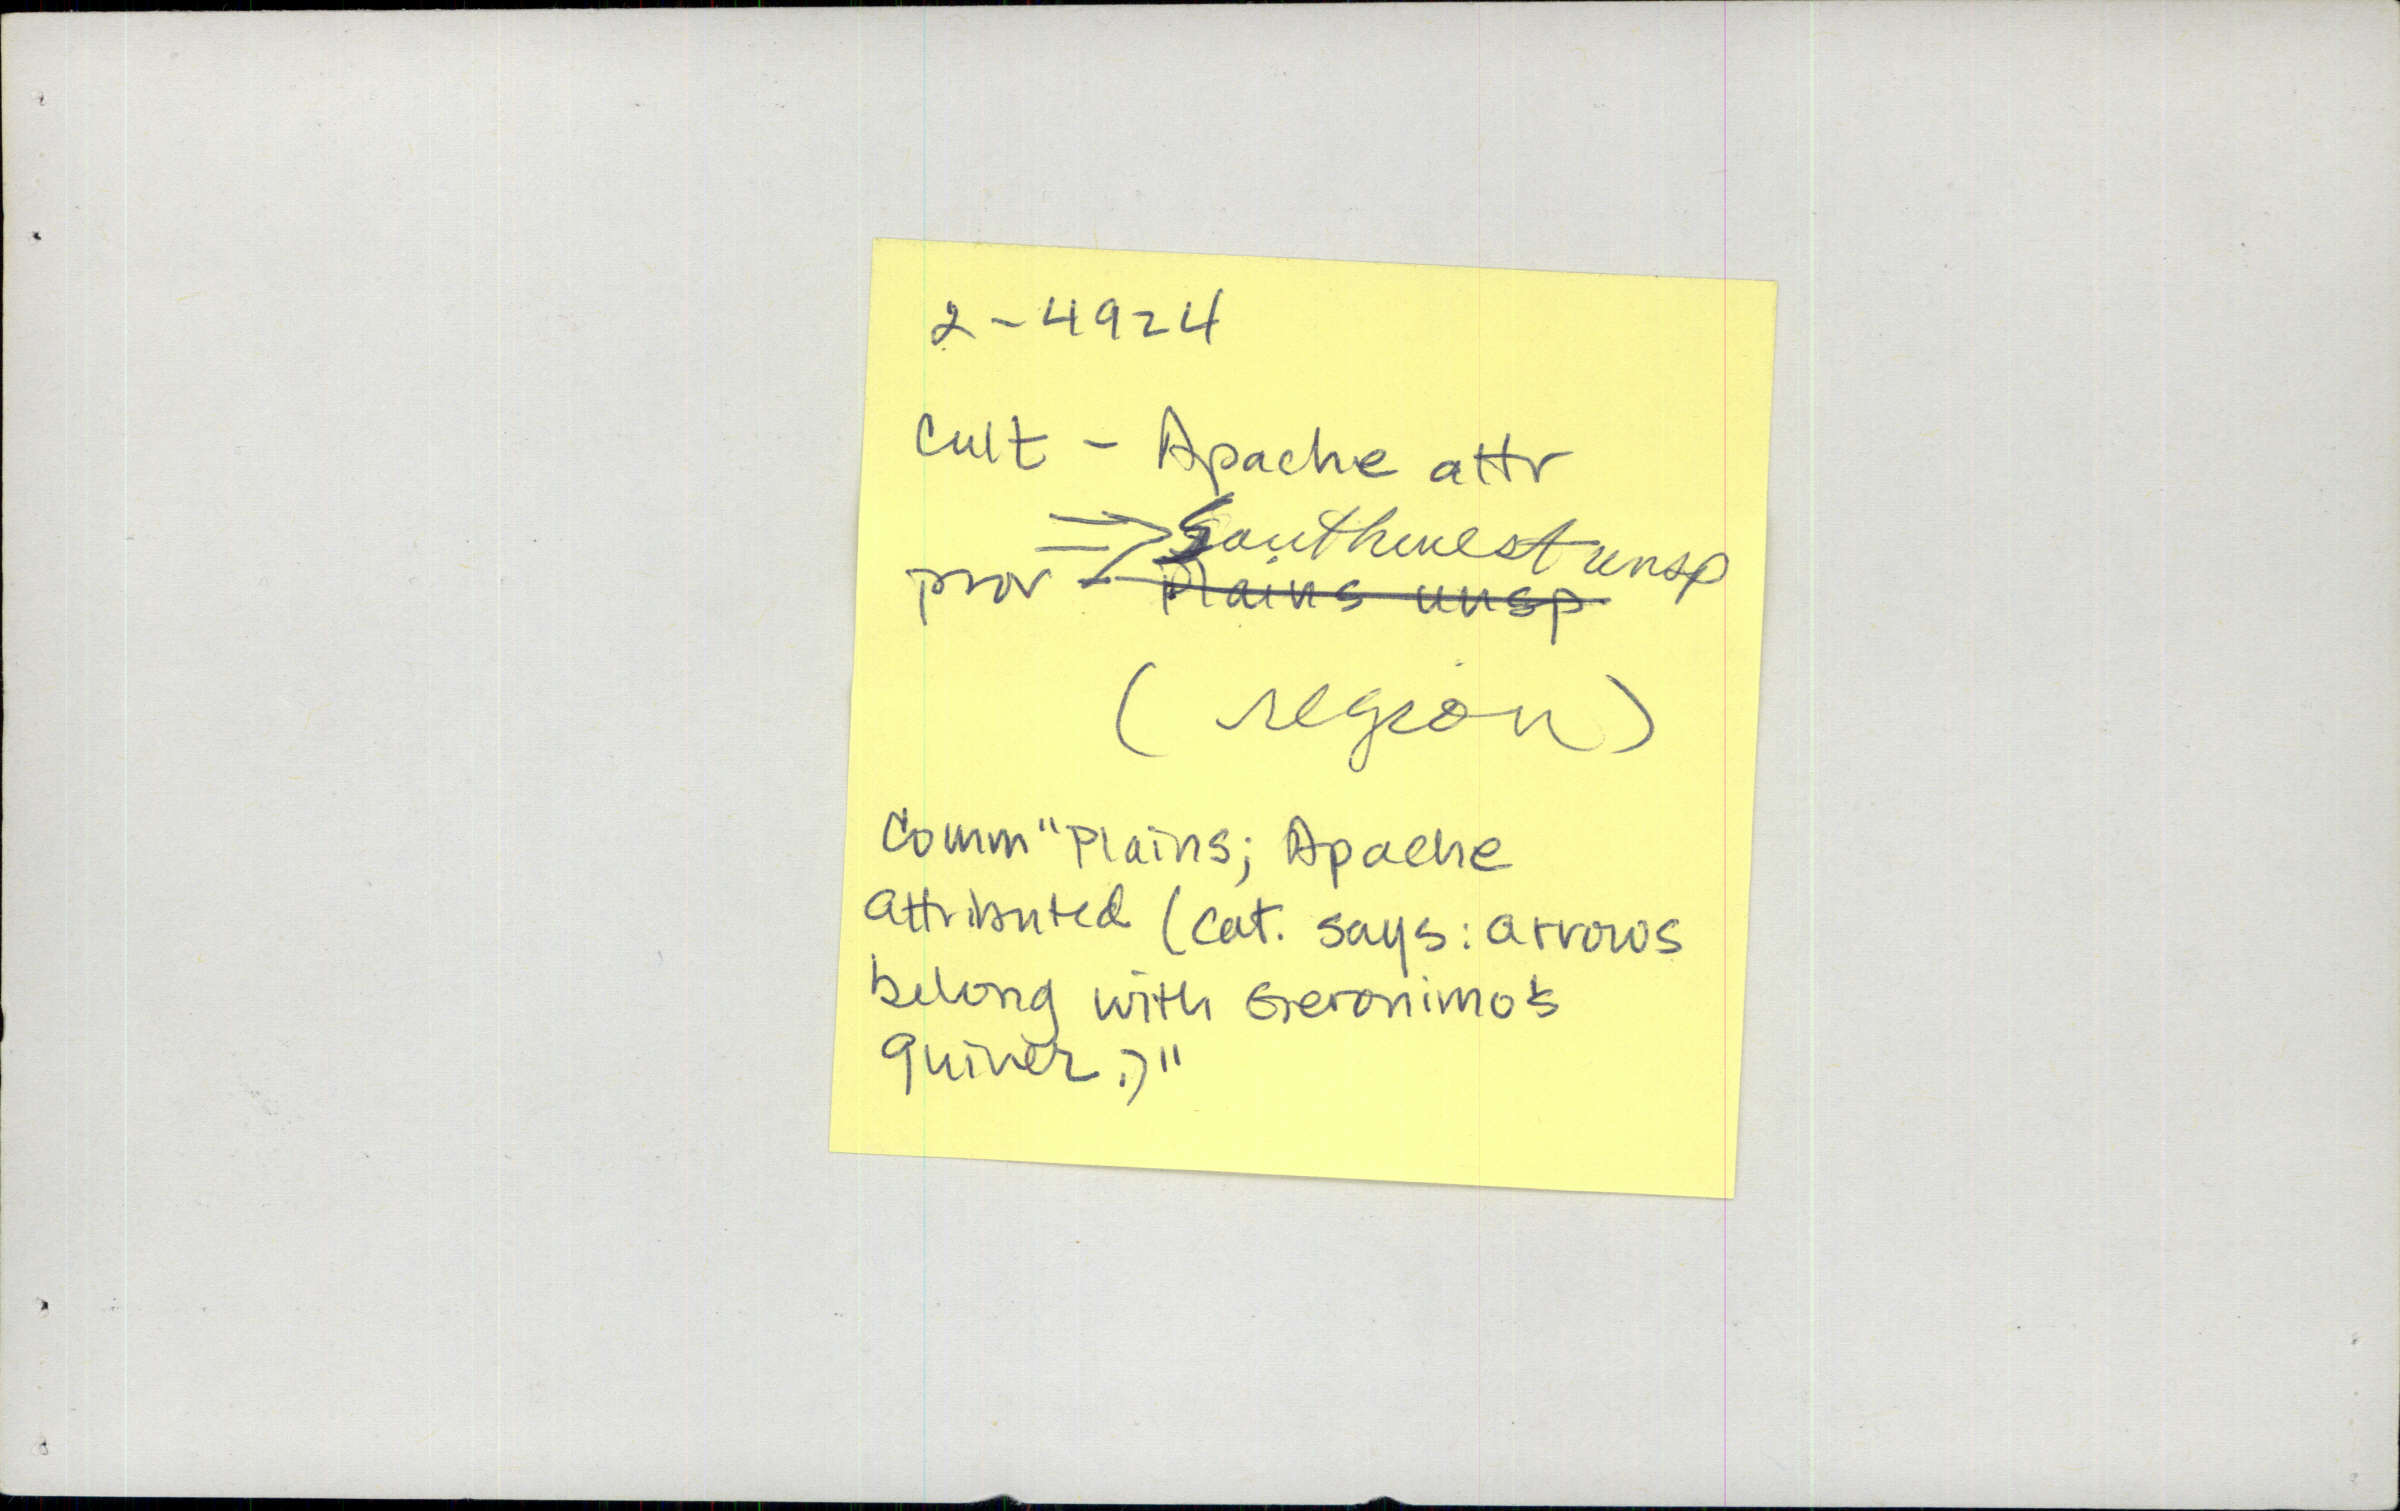 2-4924
Cult - Apache attr
⇒ Southwest unsp
prov - Plains unsp
(region)
Comm "Plains; Apache
attributed (cat. says: arrows
belong with Geronimo's
quiver.)"